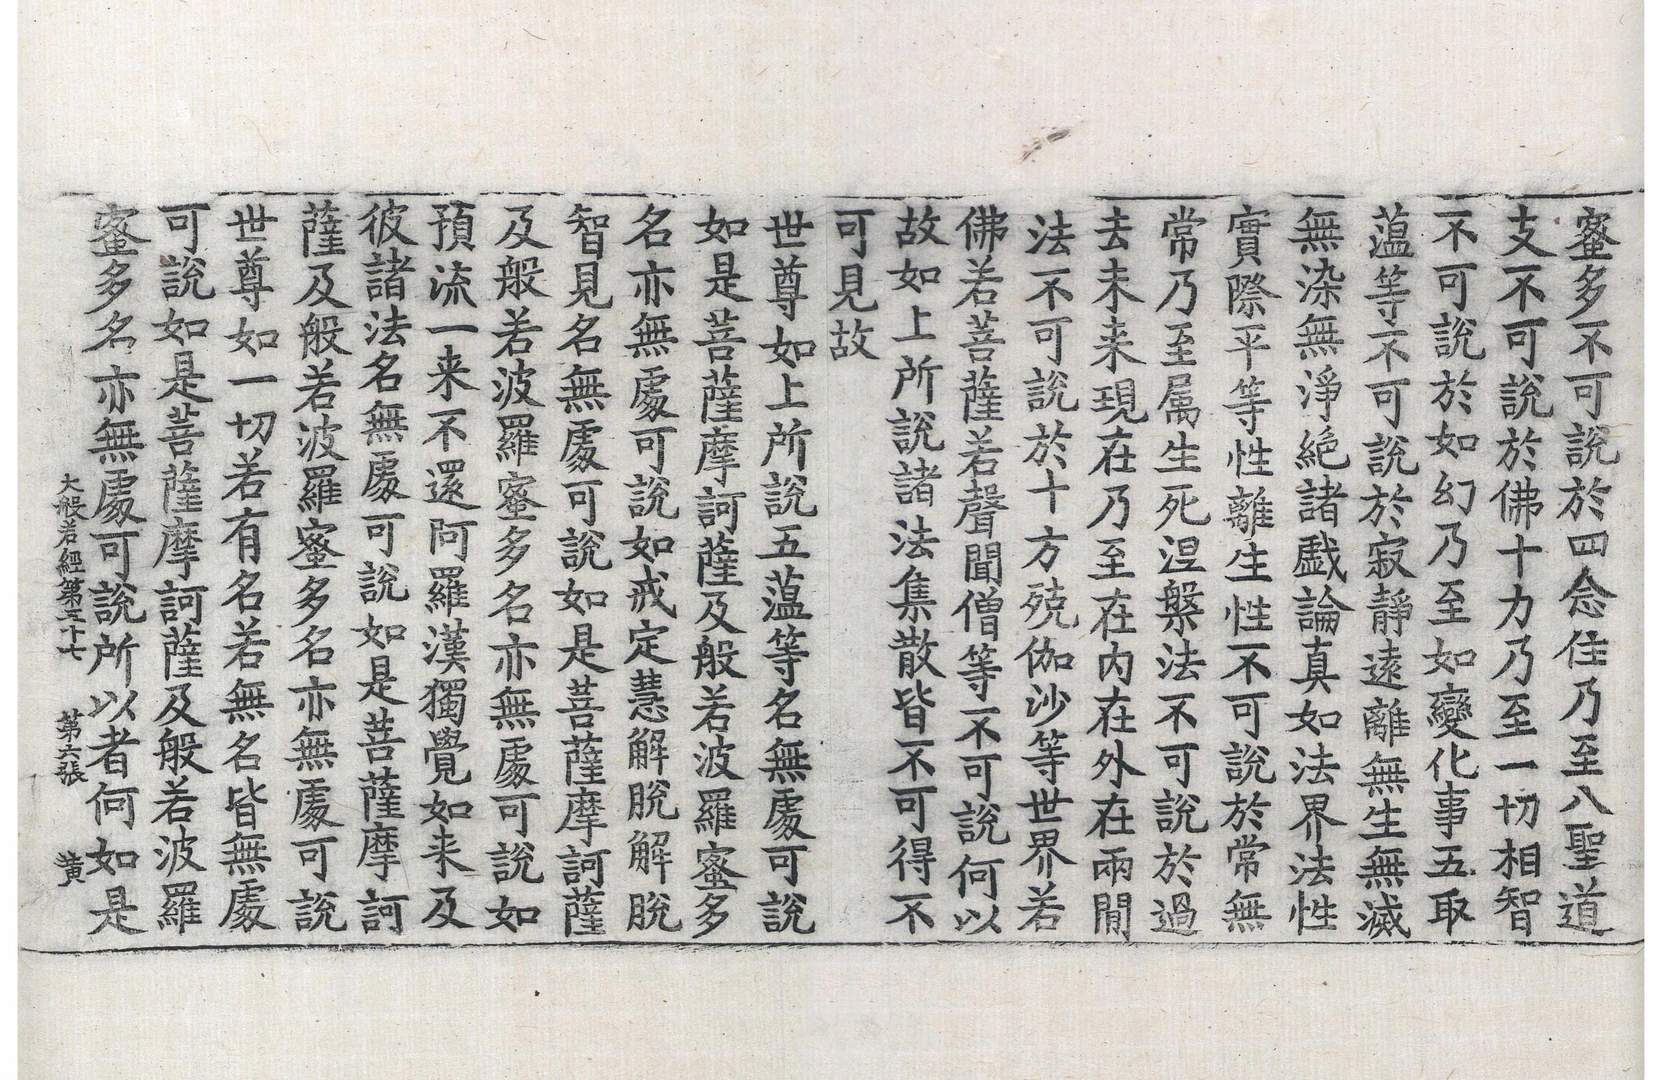 蜜多不可說於四念住乃至八聖道
支不可說於佛十力乃至一切相智
不可說於如幻乃至如變化事五取
蘊等不可說於寂靜遠離無生無滅
無染無淨絕諸戲論真如法界法性
實際平等性離生性不可說於常無
常乃至属生死涅槃法不可說於過
去未来現在乃至在內在外在兩間
法不可說於十方殑伽沙等世界若
佛若菩薩若聲聞僧等不可說何以
故如上所說諸法集散皆不可得不
可見故
世尊如上所說五蘊等名無處可說
如是菩薩摩訶薩及般若波羅蜜多
名亦無處可說如戒定慧解脫解脫
智見名無處可說如是菩薩摩訶薩
及般若波羅蜜多名亦無處可說如
預流一来不還阿羅漢獨覺如来及
彼諸法名無處可說如是菩薩摩訶
薩及般若波羅蜜多名亦無處可說
世尊如一切若有名若無名皆無處
可說如是菩薩摩訶薩及般若波羅
蜜多名亦無處可說所以者何如是
大般若經第三十七 第六張 黄